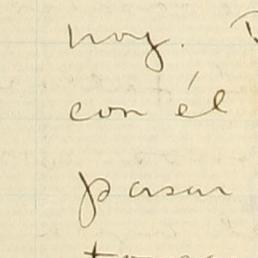 hoy.
con él
pasar